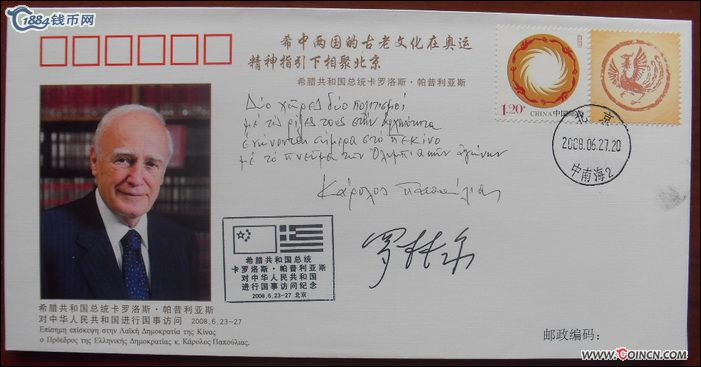 1884钱币网
希中两国的古老文化在奥运
精神指引下相聚北京
希腊共和国总统卡罗洛斯·帕普利亚斯
Δύο χώρες δύο πολιτισμοί
με τις ρίζες τους στην αρχαιότητα
ενώνονται σήμερα στο Πεκίνο
με το πνεύμα των Ολυμπιακών αγώνων
Κάρολος Παπούλιας
1.20元
CHINA 中国邮政
北京
2008.06.27.20
中南海2
希腊共和国总统
卡罗洛斯·帕普利亚斯
对中华人民共和国
进行国事访问纪念
2008.6.23-27 北京
希腊共和国总统卡罗洛斯·帕普利亚斯
对中华人民共和国进行国事访问 2008.6.23-27
Επίσημη επίσκεψη στην Λαϊκή Δημοκρατία της Κίνας
ο Πρόεδρος της Ελληνικής Δημοκρατίας κ. Κάρολος Παπούλιας.
邮政编码：
www.COINCN.com